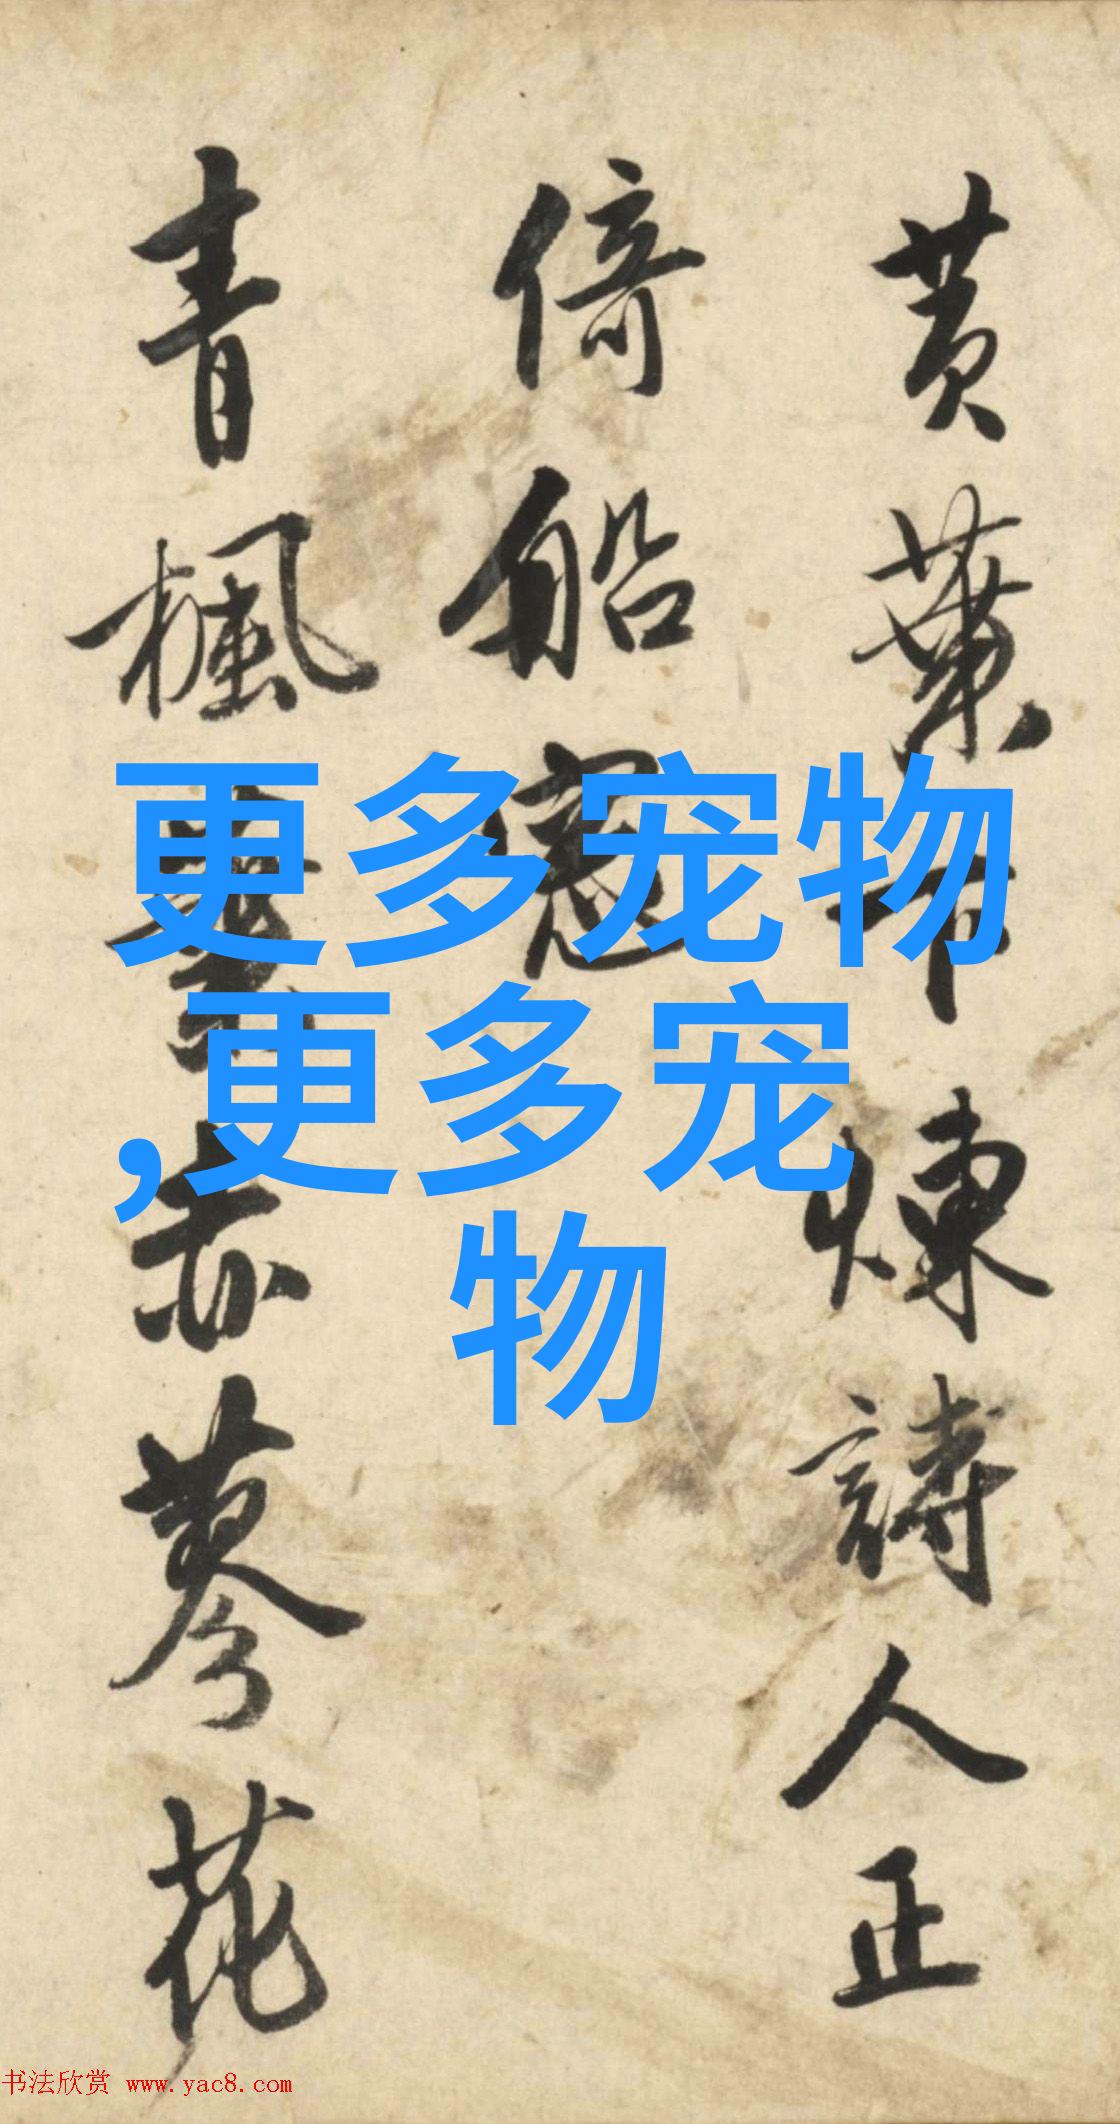 黄葉煉詩人正
倚船窓
青楓赤蓼花
更多宠物
,更多宠
物
书法欣赏 www.yac8.com